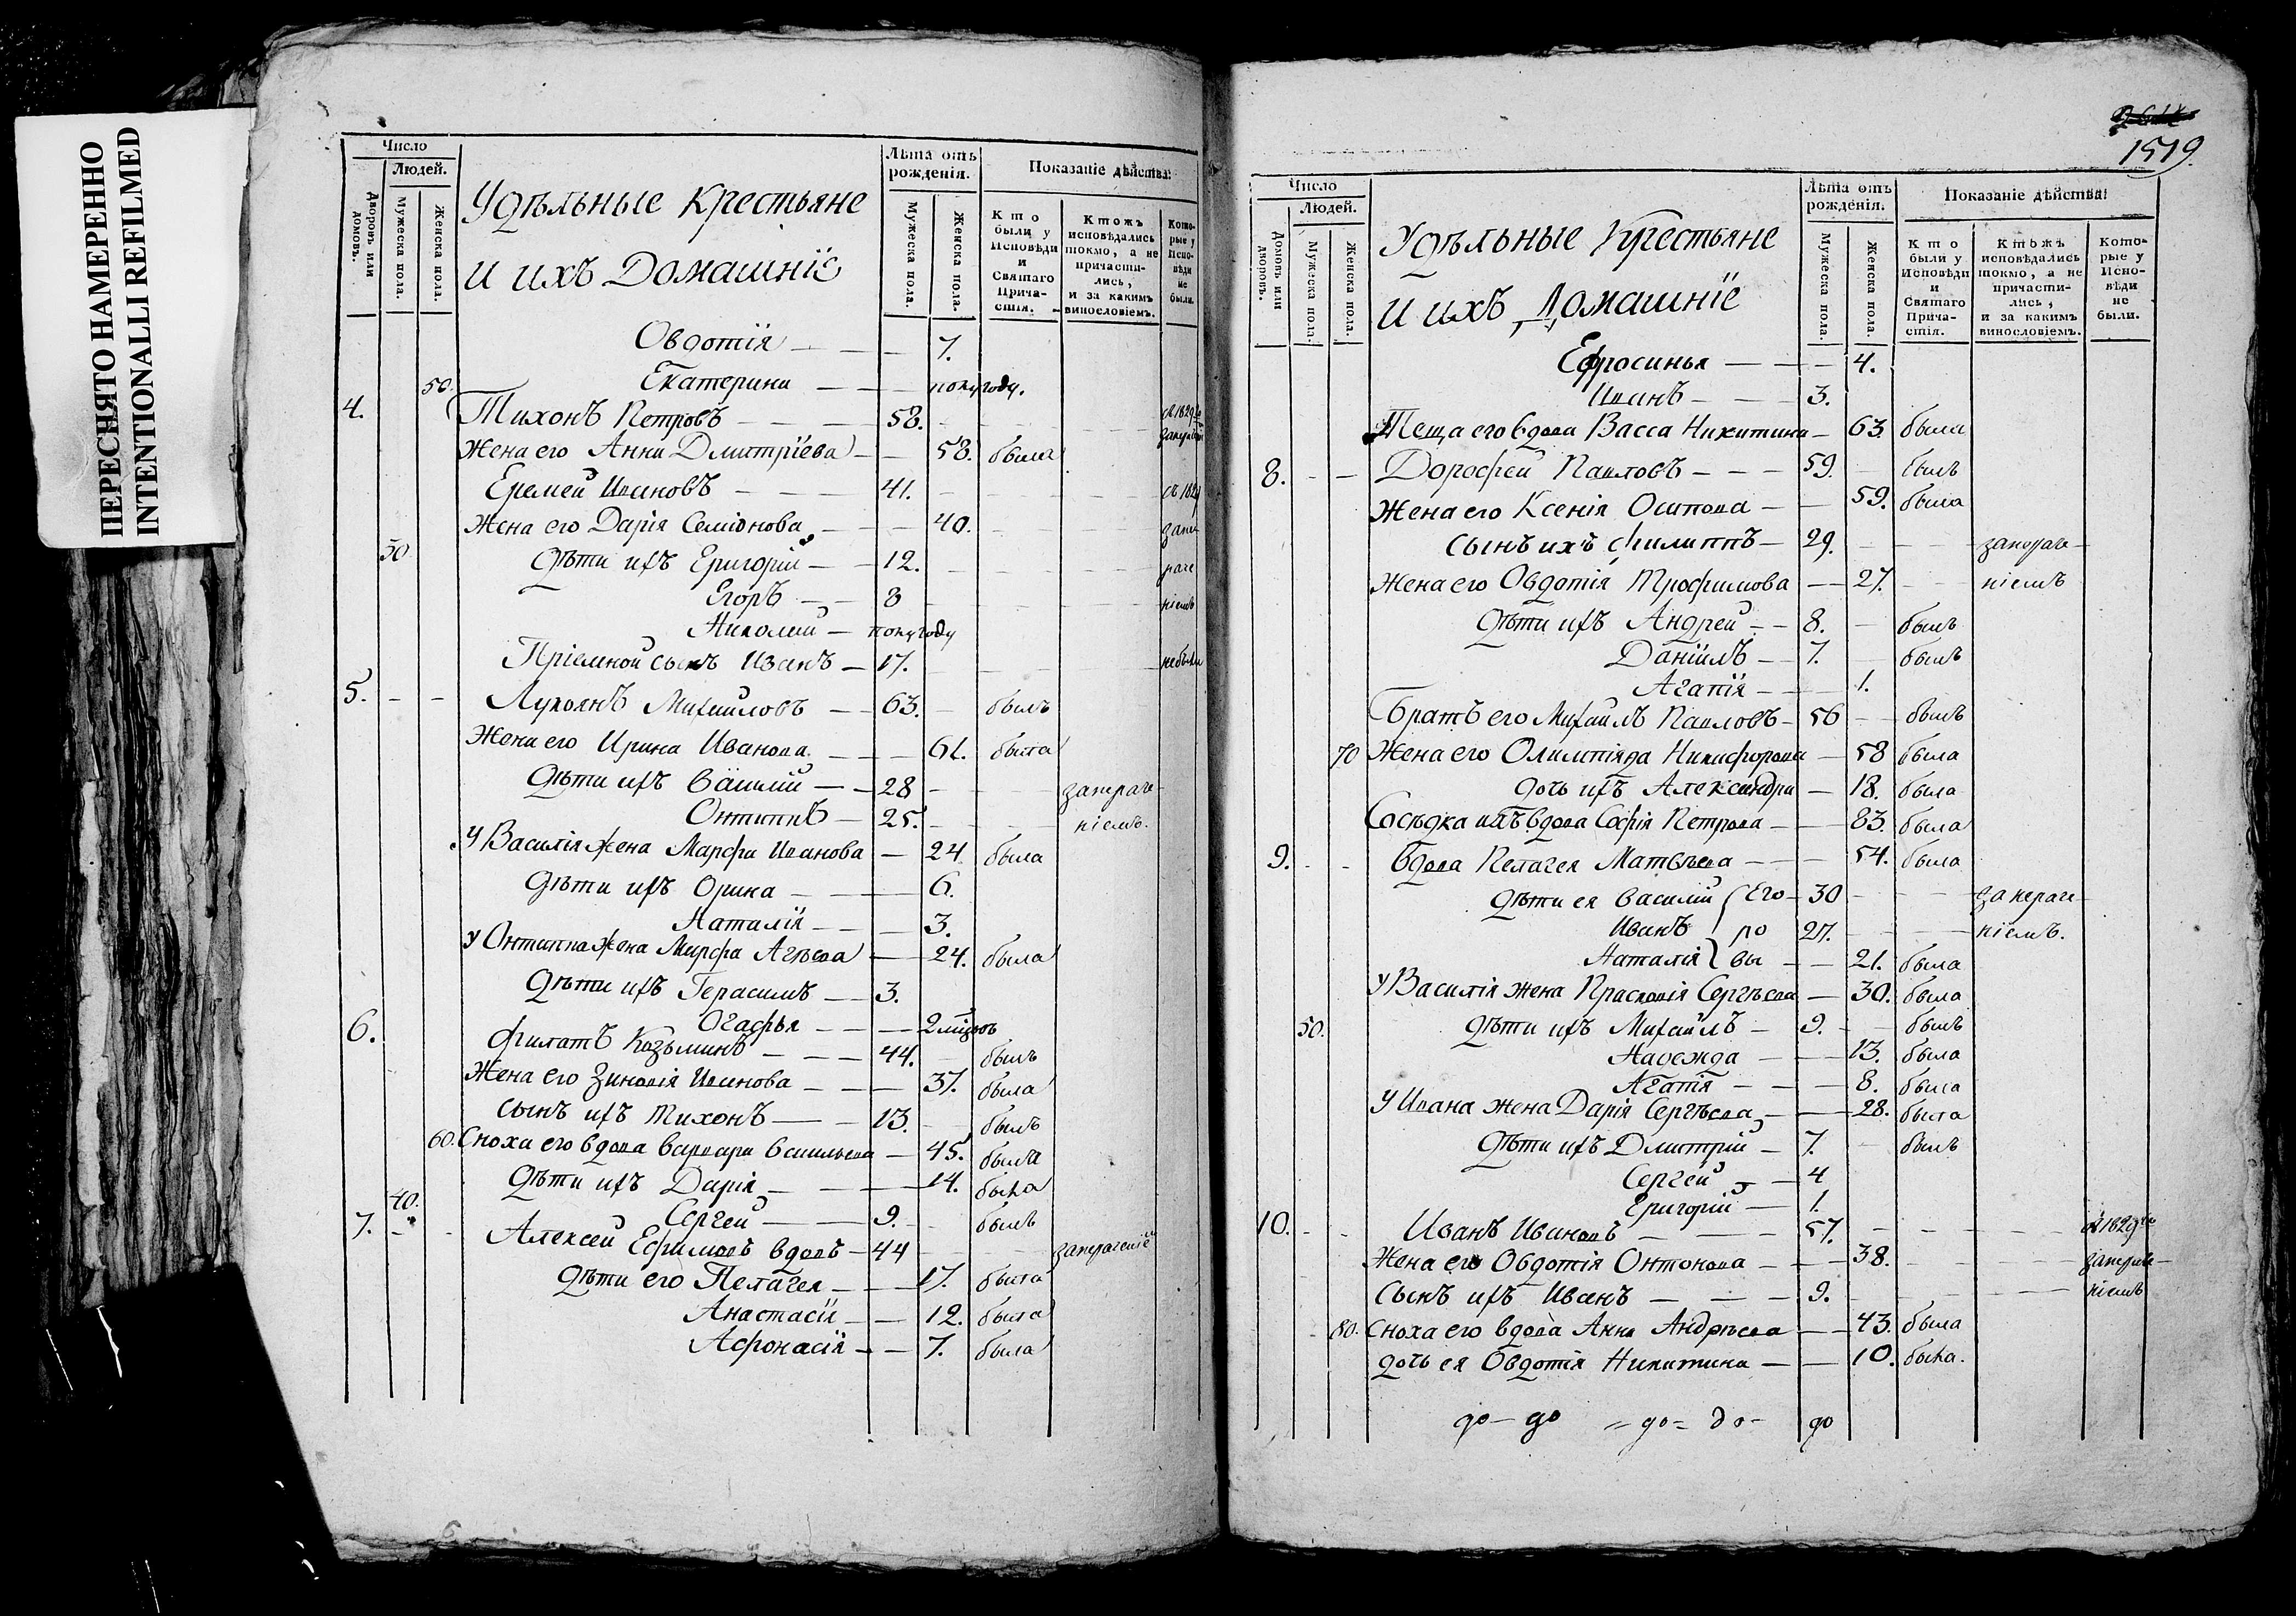 ПЕРЕСНЯТО НАМЕРЕННО
INTENTIONALLI REFILMED
Число
Людей.
Дворовъ или домовъ.
Мужеска пола.
Женска пола.
Удѣльные Крестьяне
и ихъ Домашніе
Лѣта отъ рожденія.
Мужеска пола.
Женска пола.
Показаніе дѣйства:
Кто были у Исповѣди и Святаго Прича- стія.
Ктожъ исповѣдались токмо, а не причасти- лись, и за какимъ винословіемъ.
Кото- рые у Испо- вѣди не были.
Овдотія — — 7.
50. Екатерина — — полугоду.
4. Тихонъ Петровъ — 58. — — 1829
Жена его Анна Дмитріева — — 58. была
Еремей Ивановъ — — 41. — —
Жена его Дарія Семіонова — — 40.
30 Дѣти ихъ Григорій — — 12.
Егоръ — — 8
Николай — полугоду
Пріемной сынъ Иванъ — 17. небыли
5. — — Лукоянъ Михайловъ — — 63. — былъ
Жена его Ирина Иванова — — 61. была
Дѣти ихъ Василій — — 28 — — запраче-
Онтипъ — 25. — — ніемъ.
У Василія жена Марфа Иванова — 24. была
Дѣти ихъ Орина — — 6.
Наталія — — 3.
У Онтипа жена Марфа Агѣева — — 24. была
Дѣти ихъ Герасимъ — — 3.
Огафья — — 2 мѣсяцовъ
6. Филатъ Козьминъ — — — 44. — былъ
Жена его Зиновія Иванова — — — 37. была
Сынъ ихъ Тихонъ — — 13. — былъ
60. Сноха его вдова Варвара Васильева — 45. была
Дѣти ихъ Дарія — — — 14. была
40. Сергей — — 9. — былъ
7. — — Алексей Ефимовъ вдовъ — 44 — — запрачениемъ
Дѣти его Пелагея — — 17. была
Анастасія — — 12. была
Афонасія — — 7. была
1519.
Число
Людей.
Домовъ или дворовъ.
Мужеска пола.
Женска пола.
Удѣльные Крестьяне
и ихъ Домашніе
Лѣта отъ рожденія.
Мужеска пола.
Женска пола.
Показаніе дѣйства:
Кто были у Исповѣди и Святаго Прича- стія.
Ктожъ исповѣдались токмо, а не причасти- лись, и за какимъ винословіемъ.
Кото- рые у Испо- вѣди не были.
Ефросинья — — — 4.
Иванъ — — 3.
Теща его вдова Васса Никитина — 63. была
8. — — Дорофей Павловъ — — — 59. — былъ
Жена его Ксенія Осипова — — 59. была
Сынъ ихъ Филиппъ — 29. — — запраче-
Жена его Овдотія Трофимова — — 27. — ніемъ
Дѣти ихъ Андрей — — 8. — былъ
Даніилъ — — 7. — былъ
Агапія — — 1.
Братъ его Михаилъ Павловъ — 56 — былъ
70 Жена его Олимпіяда Никифорова — 58 была
Дочь ихъ Александра — 18. была
Сосѣдка ихъ вдова Софія Петрова — — 83. была
9. — — Вдова Пелагея Матвѣева — — — 54. была
Дѣти ея Василій Его- 30 — — запраче-
Иванъ ро 27. — — ніемъ.
Наталія вы — — 21. была
У Василія жена Прасковія Сергѣева — 30. была
50. Дѣти ихъ Михаилъ — 9. — — былъ
Надежда — — 13. была
Агапія — — 8. была
У Ивана жена Дарія Сергѣева — — 28. была
Дѣти ихъ Дмитрій — 7. — былъ
Сергей — — 4
Григорій — 1.
10. — — Иванъ Ивановъ — — — 57. — — 1829
Жена его Овдотія Онтонова — — — 38. — — запраче-
Сынъ ихъ Иванъ — — — 9. — — ніемъ
80. Сноха его вдова Анна Андрѣева — — 43. была
Дочь ея Овдотія Никитина — — 10. была.
до — до = до = до — до